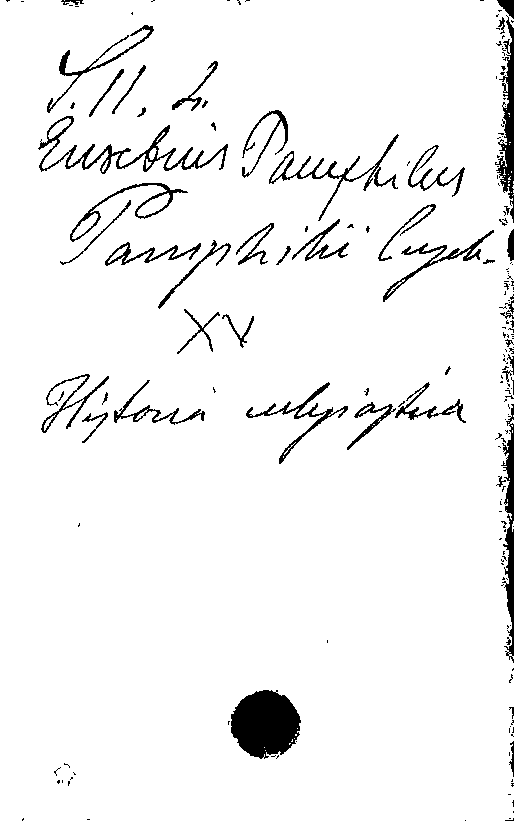 S. II, 2.
Eusebius Pamphilus
Pamphilii
XV
Historia eclesiastica